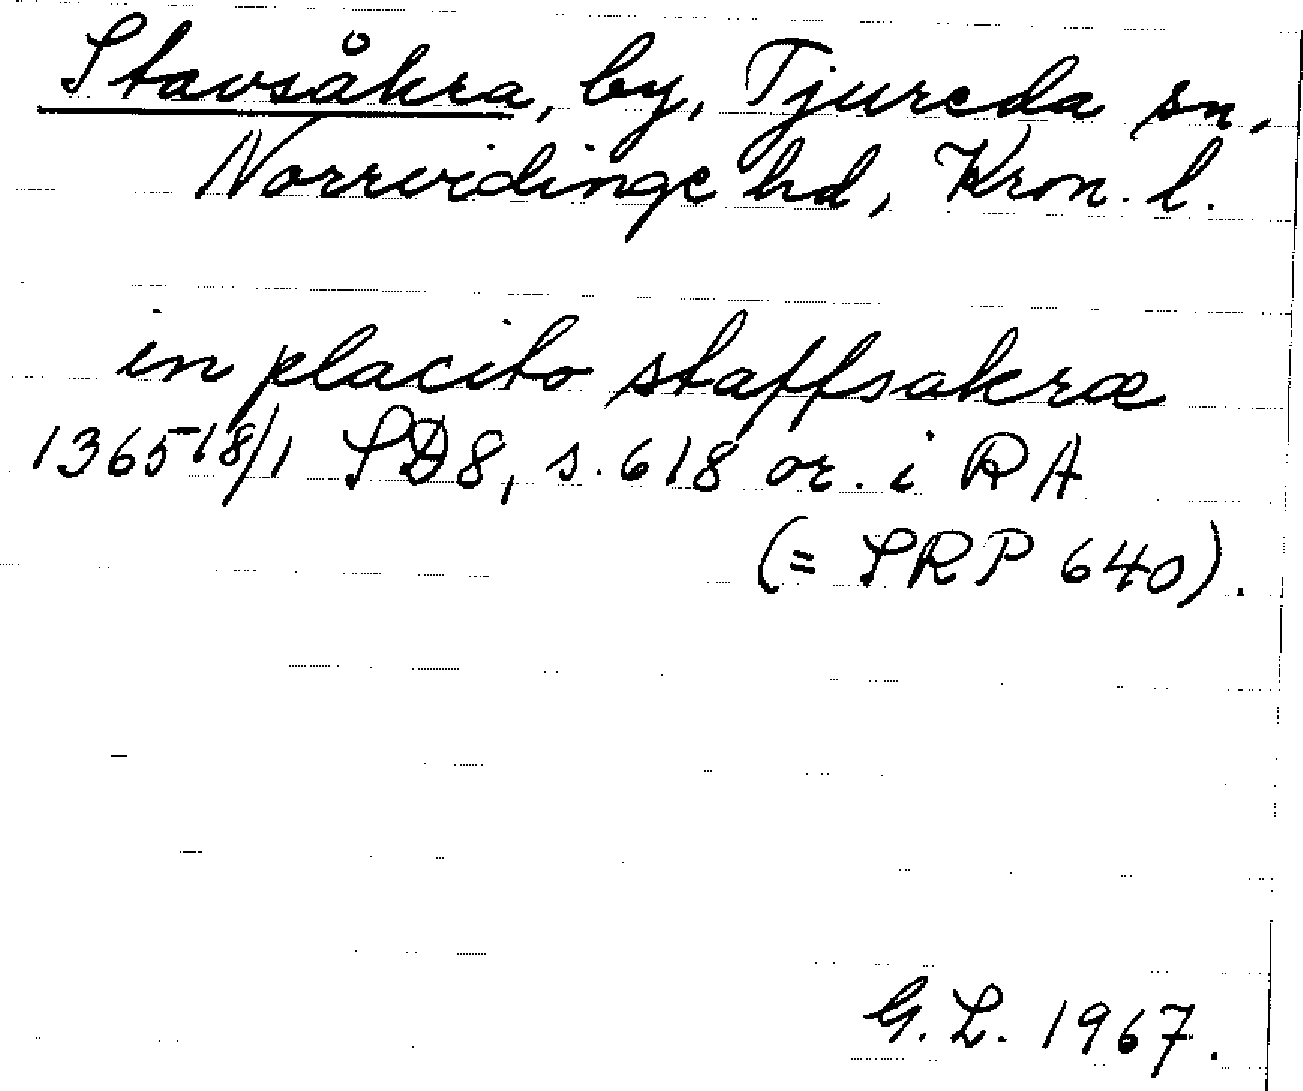 Stavsåkra, by, Tjureda sn,
Norrvidinge hd, Kron. l.
in placito staffsakræ
1365 18/1 SD8, s. 618 or. i RA
(= SRP 640).
G. L. 1967.